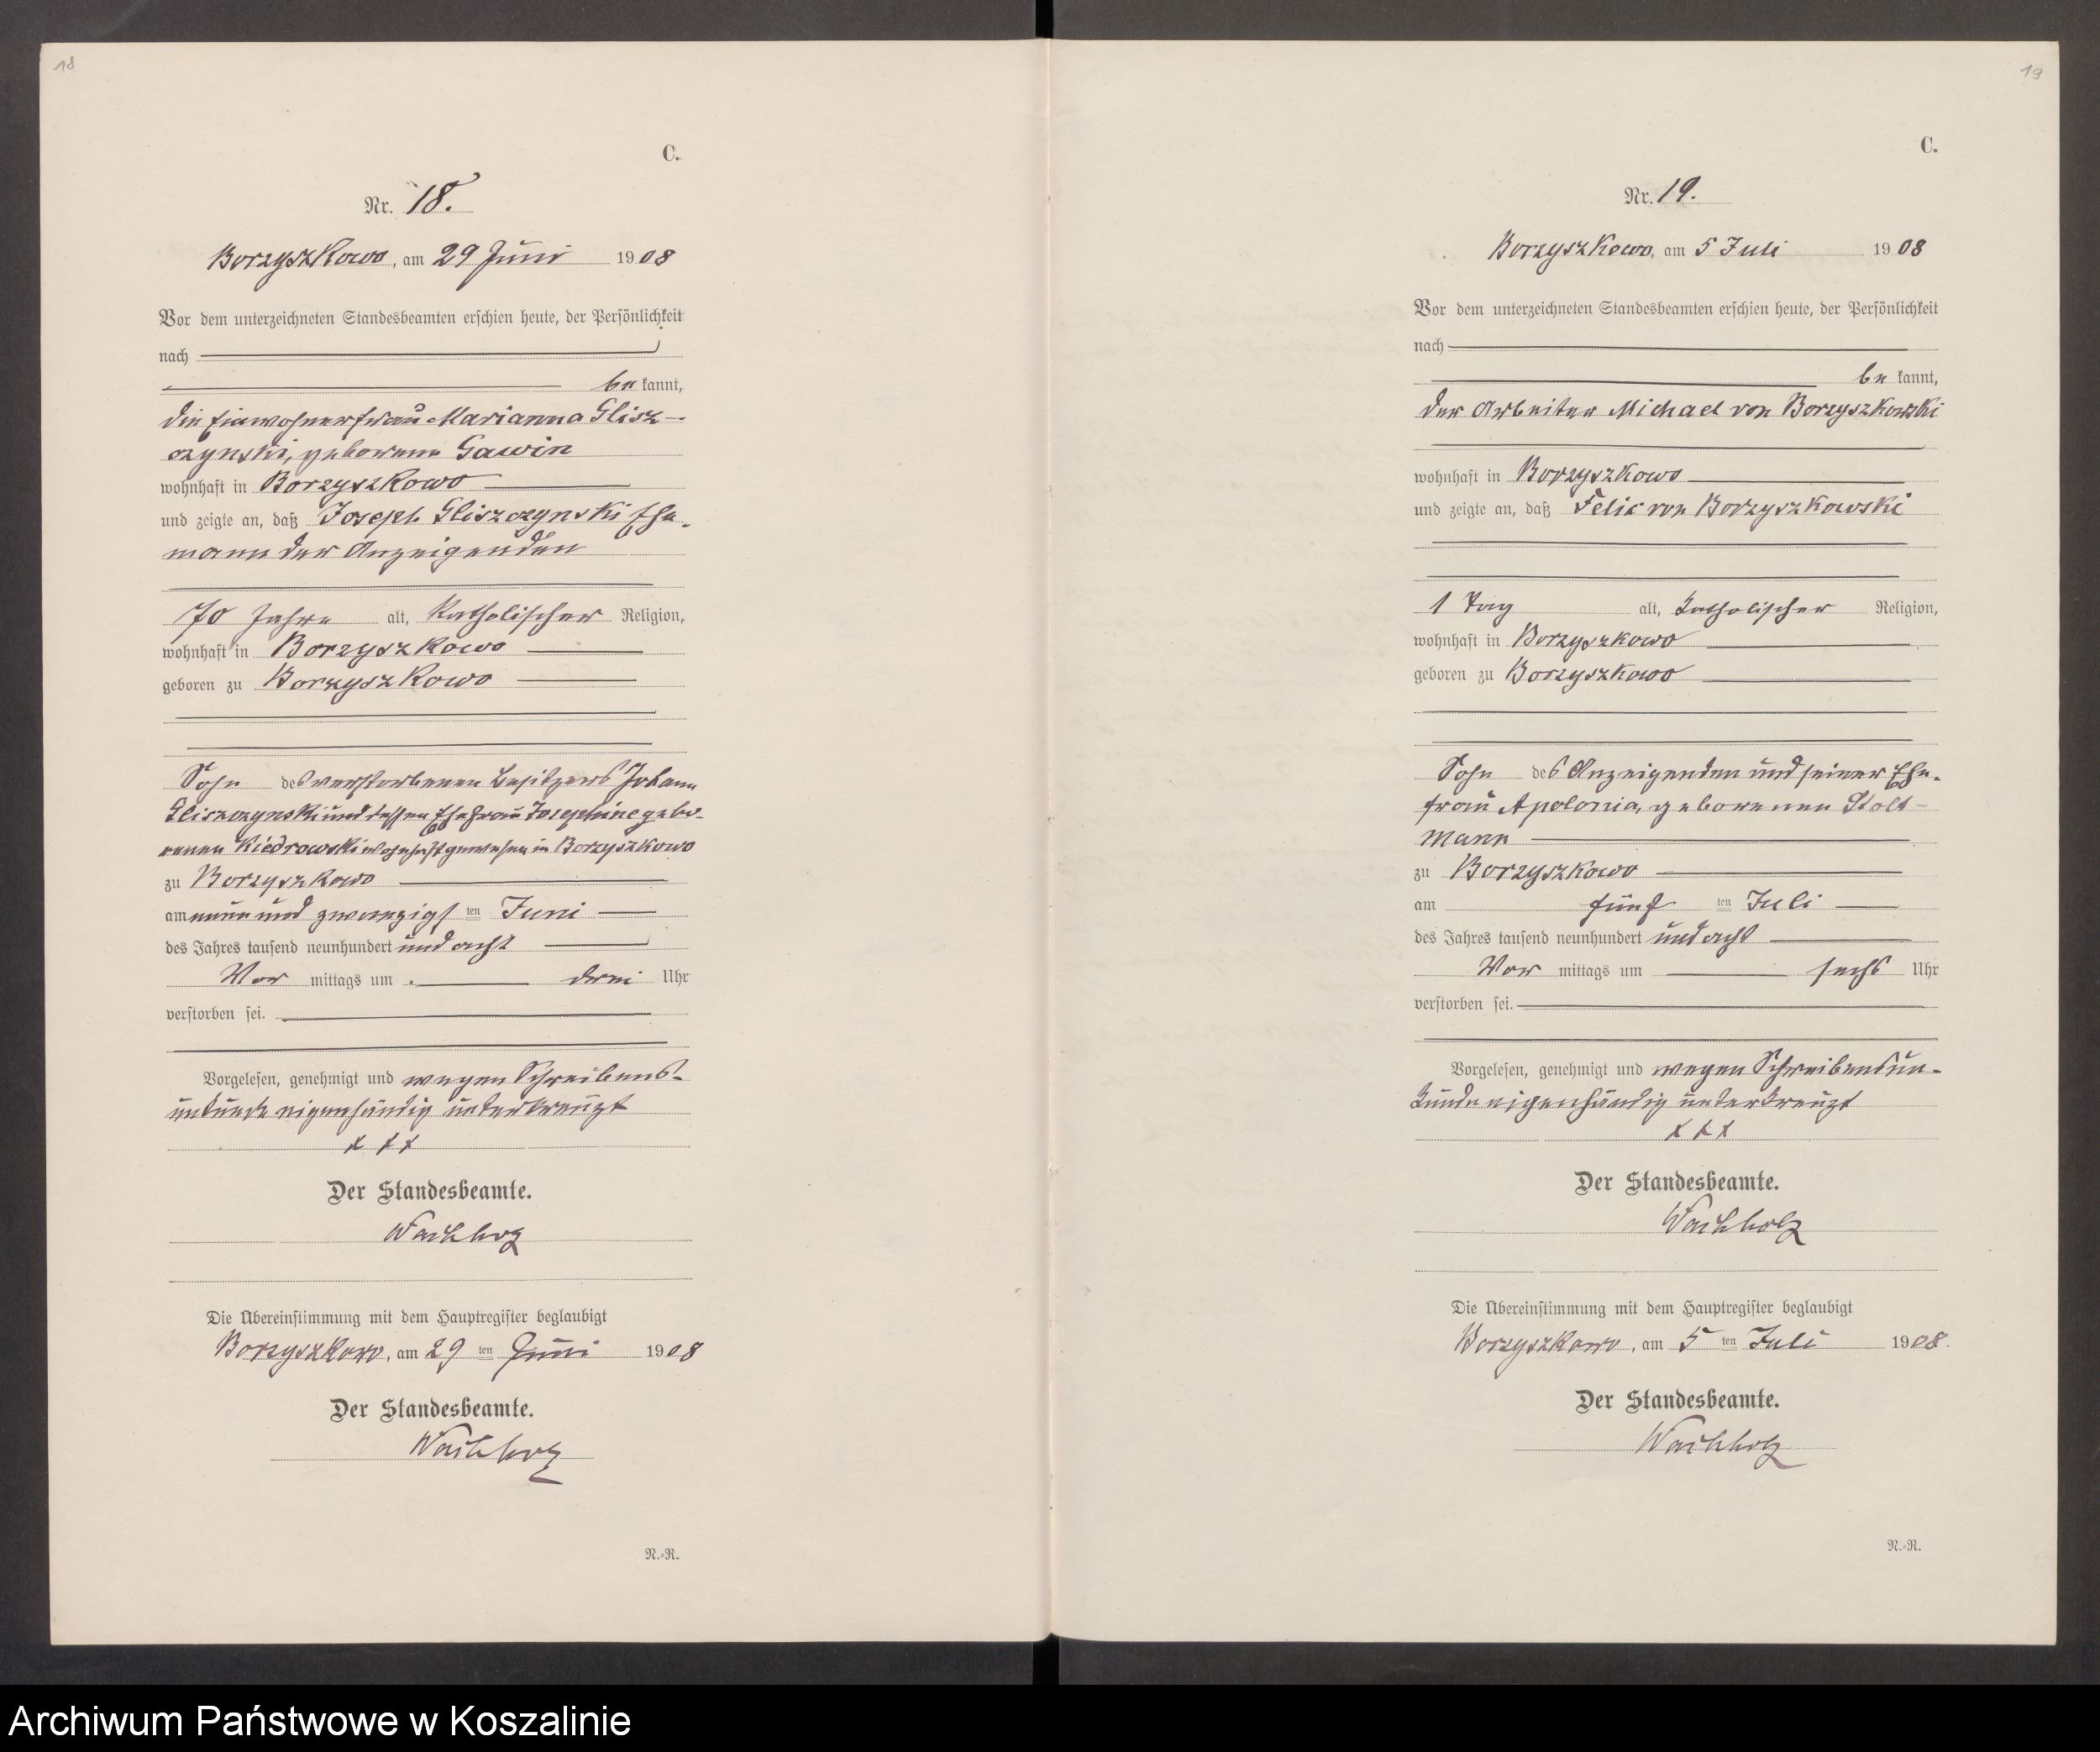 18
C.
Nr. 18.
Borzyszkowo, am 29 Juni 1908
Vor dem unterzeichneten Standesbeamten erschien heute, der Persönlichkeit
nach
be kannt,
die Einwohnerfrau Marianna Glisz-
czynski, geborene Gawin
wohnhaft in Borzyszkowo
und zeigte an, daß Joseph Gliszczynski Ehe-
mann der Anzeigenden
70 Jahre alt, katholischer Religion,
wohnhaft in Borzyszkowo
geboren zu Borzyszkowo
Sohn des verstorbenen Besitzers Johann
Gliszczynski und dessen Ehefrau Josephine gebo-
renen Kiedrowski wohnhaft gewesen in Borzyszkowo
zu Borzyszkowo
am neun und zwanzigsten Juni
des Jahres tausend neunhundert und acht
Vor mittags um drei Uhr
verstorben sei.
Vorgelesen, genehmigt und wegen Schreibens-
unkunde eigenhändig unterkreuzt
x x x
Der Standesbeamte.
Wachholz
Die Übereinstimmung mit dem Hauptregister beglaubigt
Borzyszkowo, am 29 ten Juni 1908
Der Standesbeamte.
Wachholz
N.-R.
19
C.
Nr. 19.
Borzyszkowo, am 5 Juli 1908
Vor dem unterzeichneten Standesbeamten erschien heute, der Persönlichkeit
nach
be kannt,
der Arbeiter Michael von Borzyszkowski
wohnhaft in Borzyszkowo
und zeigte an, daß Felix von Borzyszkowski
1 Tag alt, katholischer Religion,
wohnhaft in Borzyszkowo
geboren zu Borzyszkowo
Sohn des Anzeigenden und seiner Ehe-
frau Apolonia, geborenen Stolt-
mann
zu Borzyszkowo
am fünf ten Juli
des Jahres tausend neunhundert und acht
Vor mittags um sechs Uhr
verstorben sei.
Vorgelesen, genehmigt und wegen Schreibensun-
kunde eigenhändig unterkreuzt
x x x
Der Standesbeamte.
Wachholz
Die Übereinstimmung mit dem Hauptregister beglaubigt
Borzyszkowo, am 5 ten Juli 1908.
Der Standesbeamte.
Wachholz
N.-R.
Archiwum Państwowe w Koszalinie